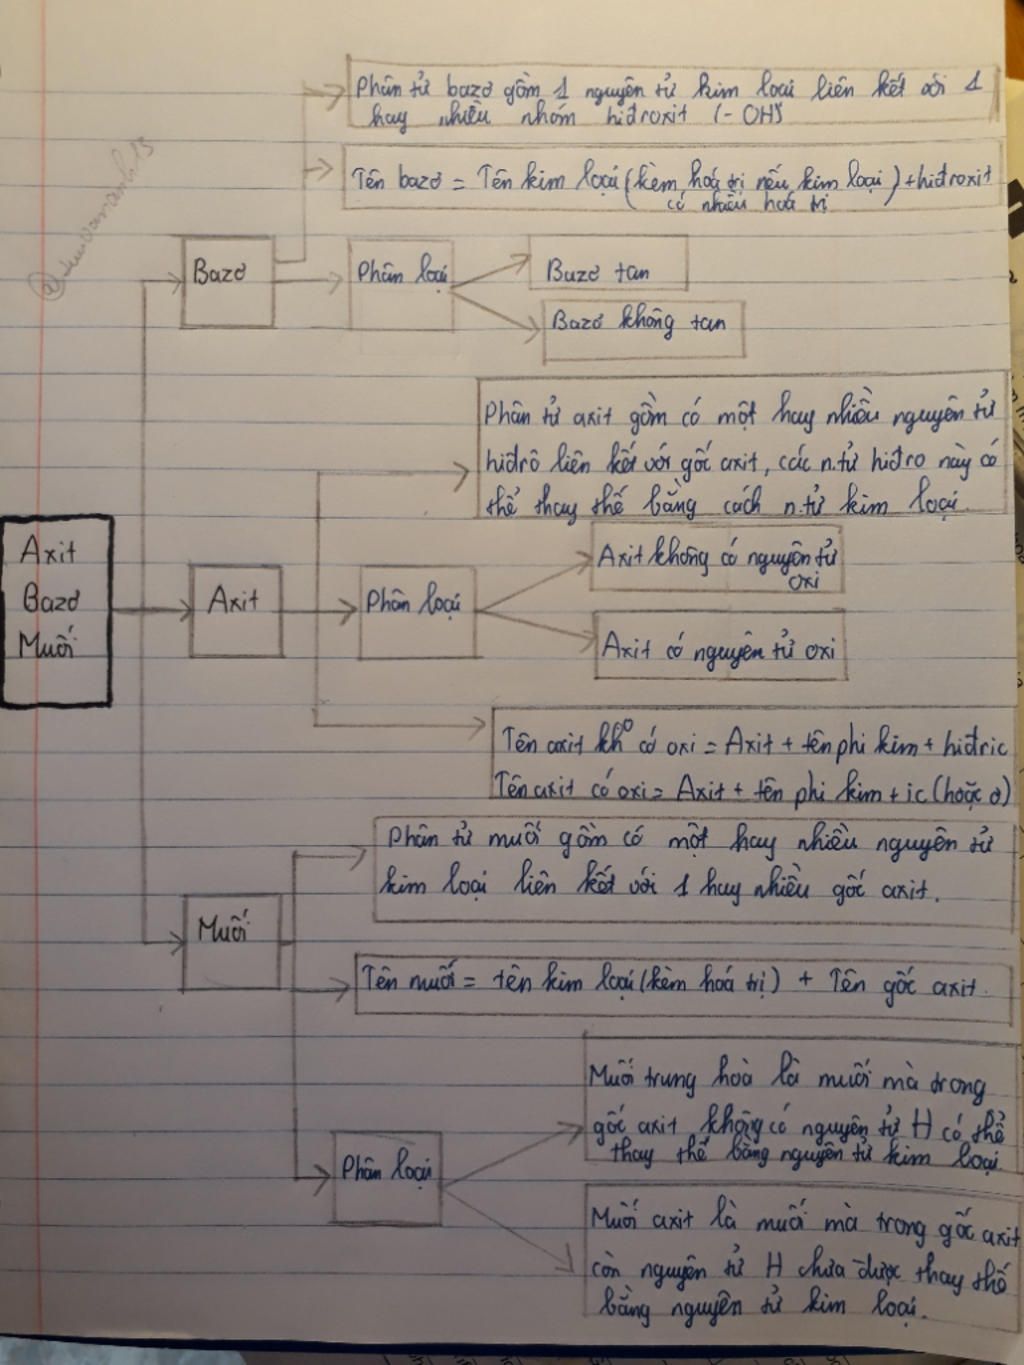 Phân tử bazơ gồm 1 nguyên tử kim loại liên kết với 1
hay nhiều nhóm hiđroxit (-OH)
Tên bazơ = Tên kim loại (kèm hoá trị nếu kim loại) + hiđroxit
có nhiều hoá trị
Bazơ
Phân loại
Bazơ tan
Bazơ không tan
Phân tử axit gồm có một hay nhiều nguyên tử
hiđrô liên kết với gốc axit, các n.tử hiđro này có
thể thay thế bằng cách n.tử kim loại.
Axit
Bazơ
Muối
Axit
Phân loại
Axit không có nguyên tử
oxi
Axit có nguyên tử oxi
Tên axit kh° có oxi = Axit + tên phi kim + hiđric
Tên axit có oxi = Axit + tên phi kim + ic (hoặc ơ)
Phân tử muối gồm có một hay nhiều nguyên tử
kim loại liên kết với 1 hay nhiều gốc axit.
Muối
Tên muối = tên kim loại (kèm hoá trị) + Tên gốc axit.
Phân loại
Muối trung hoà là muối mà trong
gốc axit không có nguyên tử H có thể
thay thế bằng nguyên tử kim loại.
Muối axit là muối mà trong gốc axit
còn nguyên tử H chưa được thay thế
bằng nguyên tử kim loại.